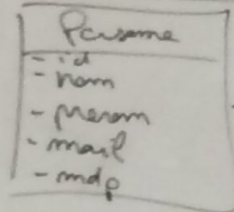 Personne
- id
- nom
- prenom
- mail
- mdp